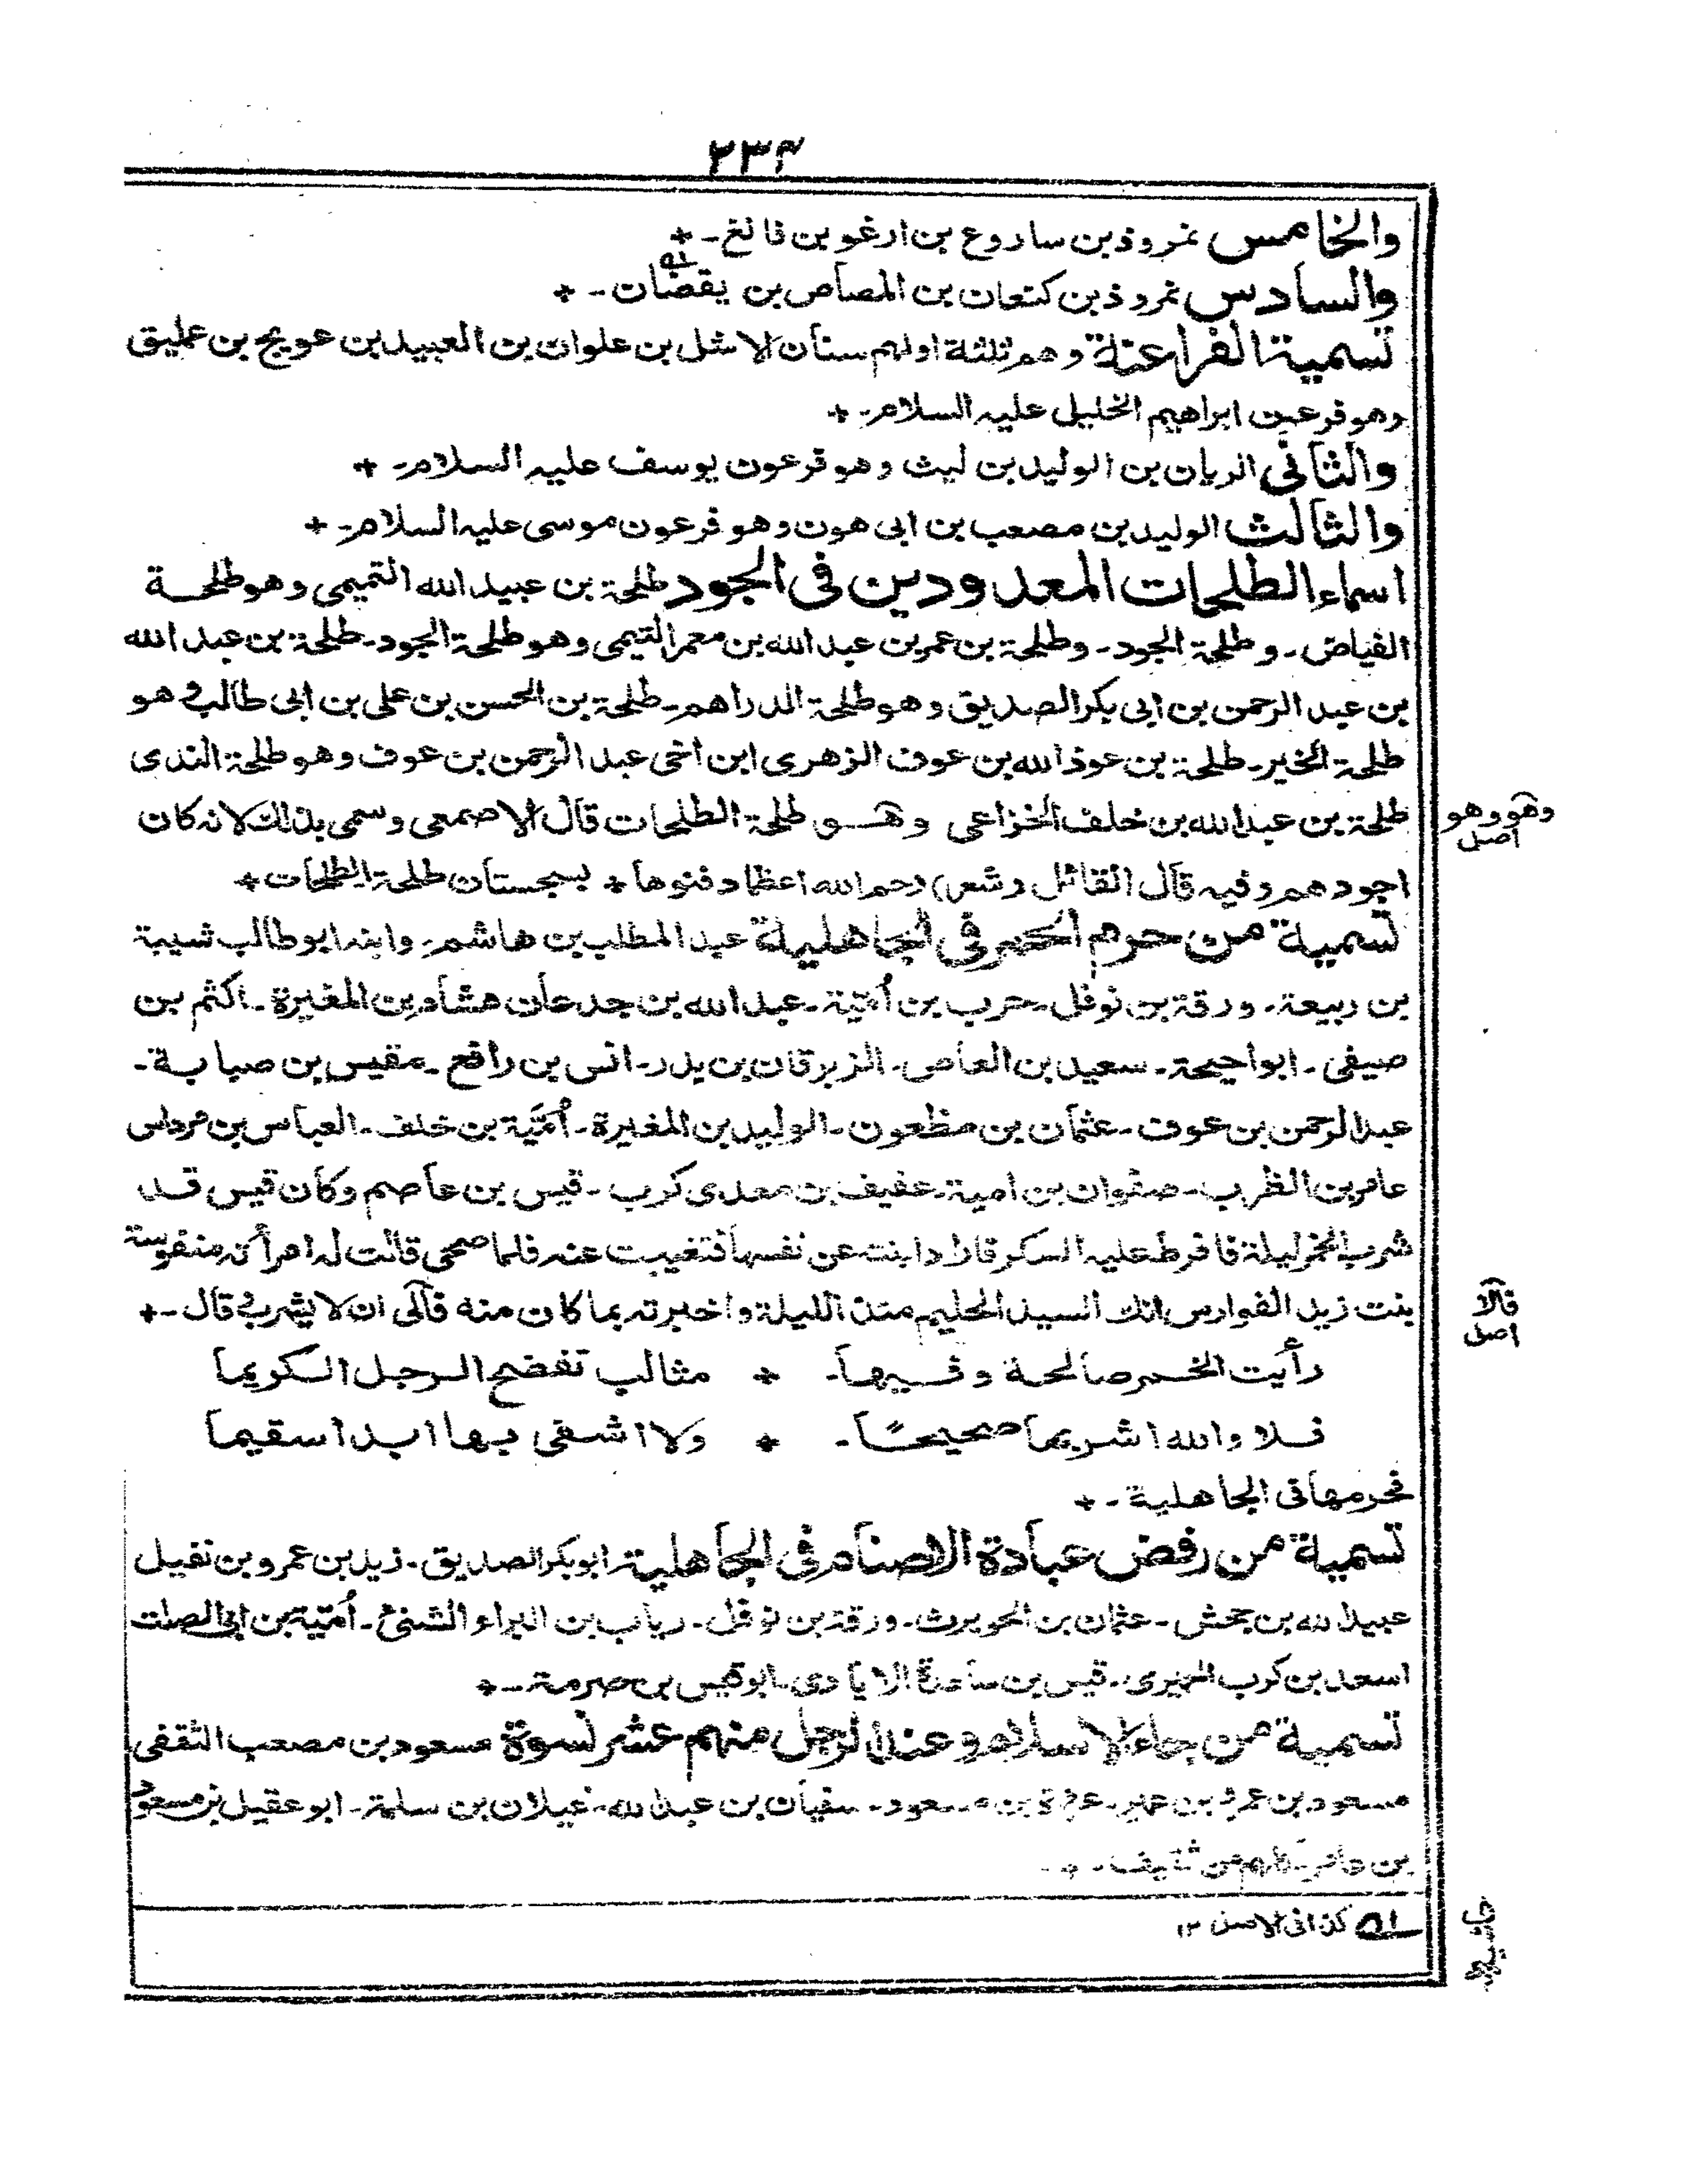 ٢٣٤
والخامس نمروذ بن ساروع بن ارغو بن فالغ-+
والسادس نمروذ بن كنعان بن المصاص بن يقصان-+
تسمية الفراعنة وهم ثلثة اولهم سنان الاشل بن علوان بن العبيد بن عويج بن عمليق
وهو فرعون ابراهيم الخليل عليه السلام-+
والثانى الريان بن الوليد بن ليث وهو فرعون يوسف عليه السلام-+
والثالث الوليد بن مصعب بن ابى هون وهو فرعون موسى عليه السلام-+
اسماء الطلحات المعدودين فى الجود طلحة بن عبيد الله التميمى وهو طلحة
الفياض- وطلحة الجود- وطلحة بن عمر بن عبد الله بن معمر التيمى وهو طلحة الجود- طلحة بن عبد الله
بن عبد الرحمن بن ابى بكر الصديق وهو طلحة الدراهم- طلحة بن الحسن بن على بن ابى طالب وهو
طلحة الخير- طلحة بن عوذ الله بن عوف الزهرى ابن اخى عبد الرحمن بن عوف وهو طلحة الندى
طلحة بن عبد الله بن خلف الخزاعى وهو طلحة الطلحات قال الاصمعى وسمى بذلك لانه كان
وهو وهو
اصل
اجودهم وفيه قال القائل (شعر) رحم الله اعظما دفنوها + بسجستان طلحة الطلحات +
تسمية من حرم الخمر فى الجاهلية عبد المطلب بن هاشم- وابنه ابو طالب شيبة
بن ربيعة- ورقة بن نوفل- حرب بن أمّية- عبد الله بن جدعان هشام بن المغيرة- اكثم بن
صيفى- ابو احيحة- سعيد بن العاص- الزبرقان بن بدر- انس بن رافع- مقيس بن صبابة-
عبد الرحمن بن عوف- عثمان بن مظعون- الوليد بن المغيرة- أمَّية بن خلف- العباس بن مرداس
عامر بن الظرب- صفوان بن امية- عفيف بن معدى كرب- قيس بن عاصم وكان قيس قد
شرب الخمر ليلة فافرط عليه السكر فاراد ابنته عن نفسها فتغيبت عنه فلما صحى قالت له امرأته منفوسة
بنت زيد الفوارس انك السيد الحليم منذ الليلة واخبرته بما كان منه فآلى ان لا يشرب وقال-+
فالا
اصل
رأيت الخمر صالحة وفيها- + مثالب تفضح الرجل الكريما
فلا والله اشربها صحيحًا- + ولا اشفى بها ابدا سقيما
فحرمها فى الجاهلية-+
تسمية من رفض عبادة الاصنام فى الجاهلية ابو بكر الصديق- زيد بن عمرو بن نفيل
عبيد الله بن جحش- عثمان بن الحويرث- ورقة بن نوفل- رياب بن البراء الشنى- أمّية بن ابى الصلت
اسعد بن كرب الحميرى- قيس بن ساعدة الايادى- ابو قيس بن صرمة-+
تسمية من جاء الاسلام وعند الرجل منهم عشر نسوة مسعود بن مصعب الثقفى
مسعود بن عمرو بن عمير- عروة بن مسعود- سفيان بن عبد الله- غيلان بن سلمة- ابو عقيل بن مسعود
بن عامر- كلهم من ثقيف-+
له كذا فى الاصل ١٢
حاشيه